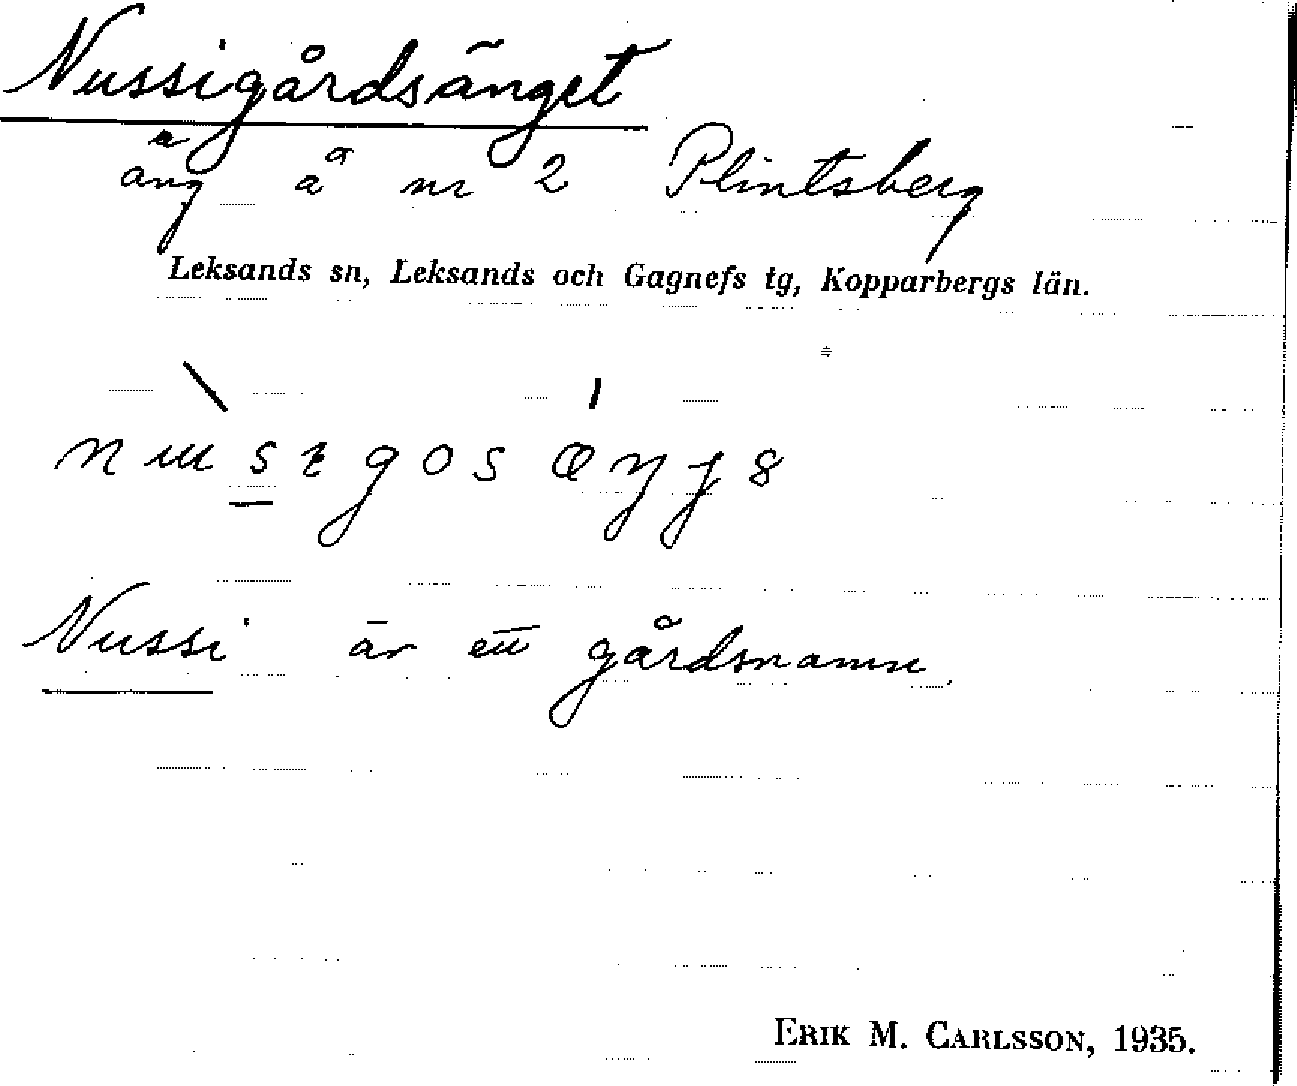 Nussigårdsänget
äng å nr 2 Plintsberg
Leksands sn, Leksands och Gagnefs tg, Kopparbergs län.
Nussi är ett gårdsnamn.
ERIK M. CARLSSON, 1935.